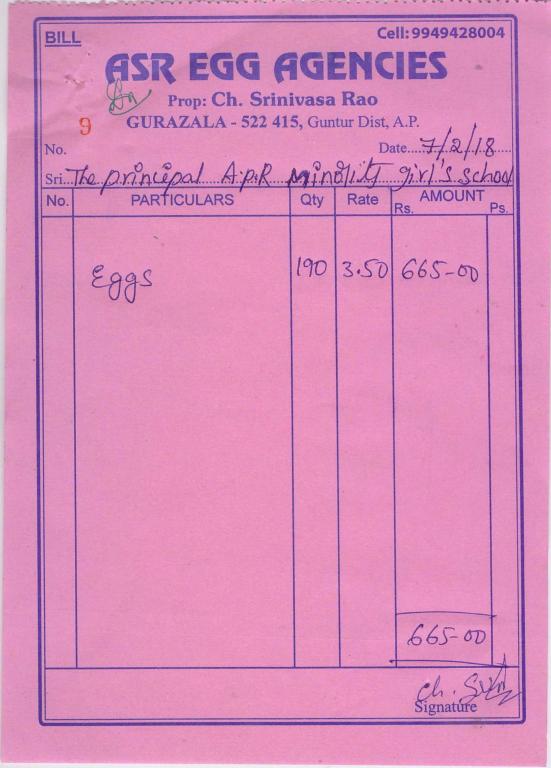 BILL
Cell: 9949428004
ASR EGG AGENCIES
Prop: Ch. Srinivasa Rao
GURAZALA - 522 415, Guntur Dist, A.P.
9
No.
Date 7/2/18
Sri The principal A.P.R minolity girl's school
No. PARTICULARS Qty Rate AMOUNT
Rs. Ps.
Eggs 190 3.50 665-00
665-00
Ch.
Signature